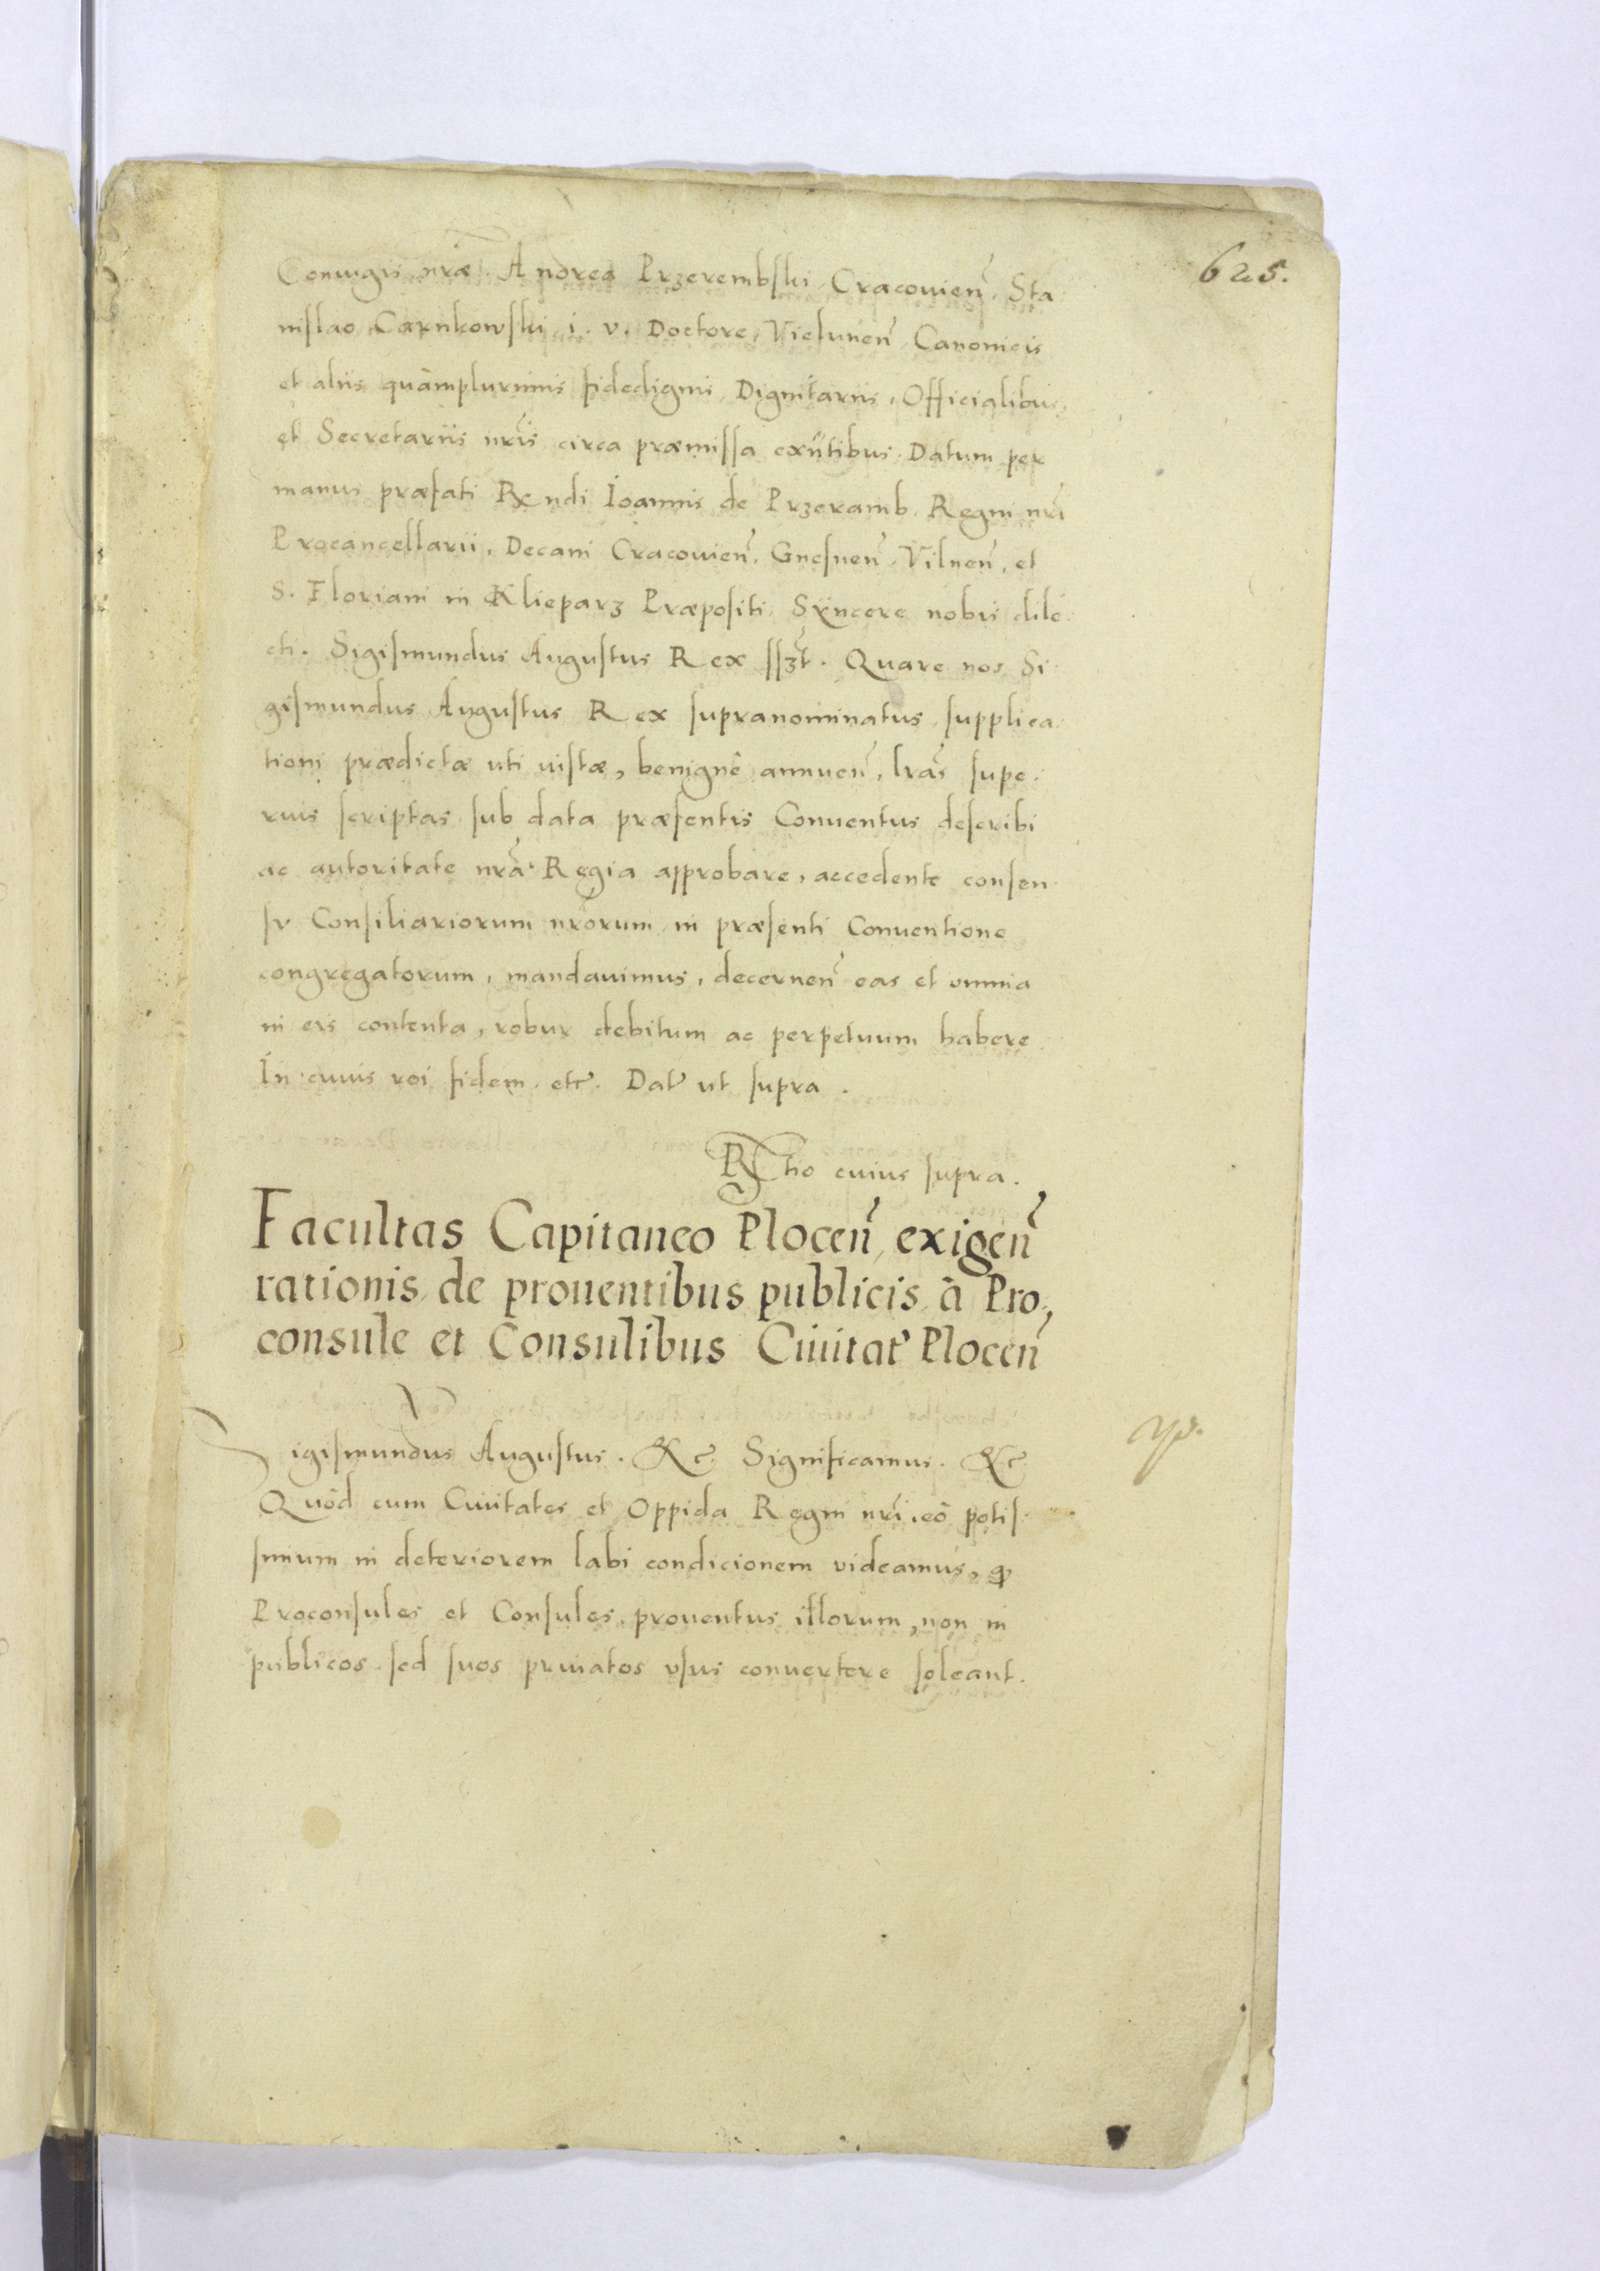 625.
Coniugis nr̃æ. Andrea Przerembski Cracouien̄. Sta
nislao Carnkowski i. v. Doctore, Vielunen̄ Canonicis
et aliis quàmplurimis fidedignis Dignitariis, Officialibus,
et Secretariis nr̃is circa præmissa exñtibus. Datum per
manus præfati Rx̃ndi Ioannis de Przeramb Regni nr̃i
Procancellarii, Decani Cracouien̄. Gnesnen̄. Vilnen̄, et
S. Floriani in Klieparz Præpositi, Syncere nobis dile
cti. Sigismundus Augustus Rex sszt. Quare nos Si
gismundus Augustus Rex supranominatus, supplica
tioni prædictæ uti iustæ, benignè annuen̄, lr̃as supe
rius scriptas sub data præsentis Conuentus describi
ac autoritate nr̃a Regia approbare, accedente consen
su Consiliariorum nr̃orum in præsenti Conuentione
congregatorum, mandauimus, decernen̄ eas et omnia
in eis contenta, robur debitum ac perpetuum habere
In cuius rei fidem etc. Dat ut supra.
Rtio cuius supra.
Facultas Capitaneo Plocen̄ exigen̄
rationis de prouentibus publicis à Pro,
consule et Consulibus Ciuitat Plocen̄
Sigismundus Augustus. &c Significamus. &c
Quòd cum Ciuitates et Oppida Regni nr̃i eò potis
simum in deteriorem labi condicionem videamus, ꝙ
Proconsules et Consules prouentus illorum, non in
publicos sed suos priuatos vsus conuertere soleant.